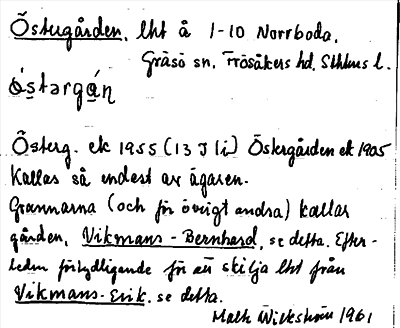 Östergården, lht å 1-10 Norrboda,
Gräsö sn, Frösåkers hd, Sthlms l.
óstərgą́ņ
Österg. ek 1955 (13 J 1i) Östergården ek 1905
Kallas så endast av ägaren.
Grannarna (och för övrigt andra) kallar
gården, Vikmans-Bernhard, se detta. Efter-
leden förtydligande för att skilja lht från
Vikmans-Erik, se detta.
Wikström 1961